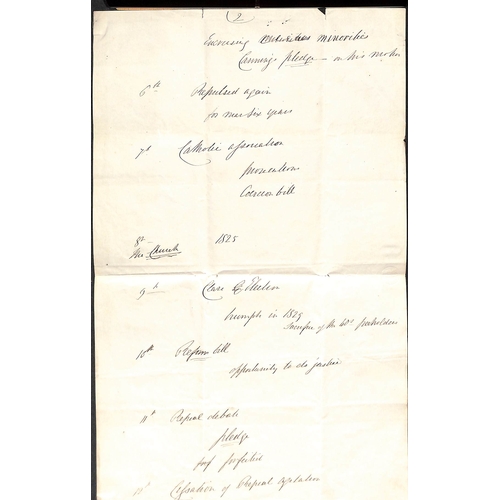 (2)
Encreasing minorities
Canning's pledge – on his motion
6th Repulsed again
for near six years
7th Catholic association
prosecutions
Coercion bill
8th 1825
The Church
9th Clare Election
triumph in 1829
Sacrifice of the 40s freeholders
10th Reform bill
opportunity to do justice
11th Repeal debate
pledge
12th Cessation of Repeal agitation